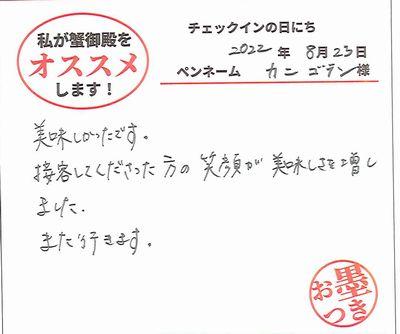 私が蟹御殿を
オススメ
します！
チェックインの日にち
2022 年 8月23日
ペンネーム カニ ゴテン 様
美味しかったです。
接客してくださった方の笑顔が美味しさを増し
ました。
また行きます。
お墨
つき